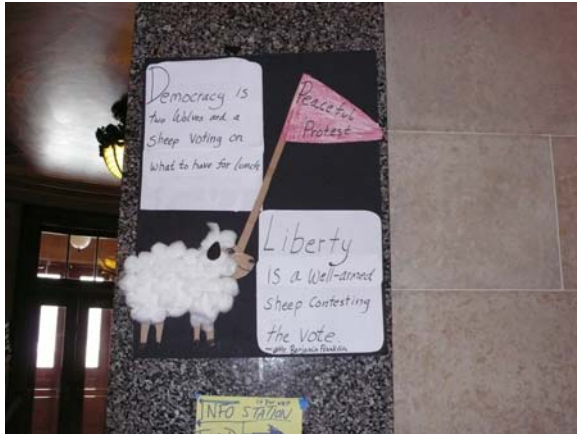 Democracy is
two Wolves and a
Sheep Voting on
what to have for lunch
Peaceful
Protest
Liberty
is a Well-armed
Sheep Contesting
the vote.
Benjamin Franklin
INFO STATION